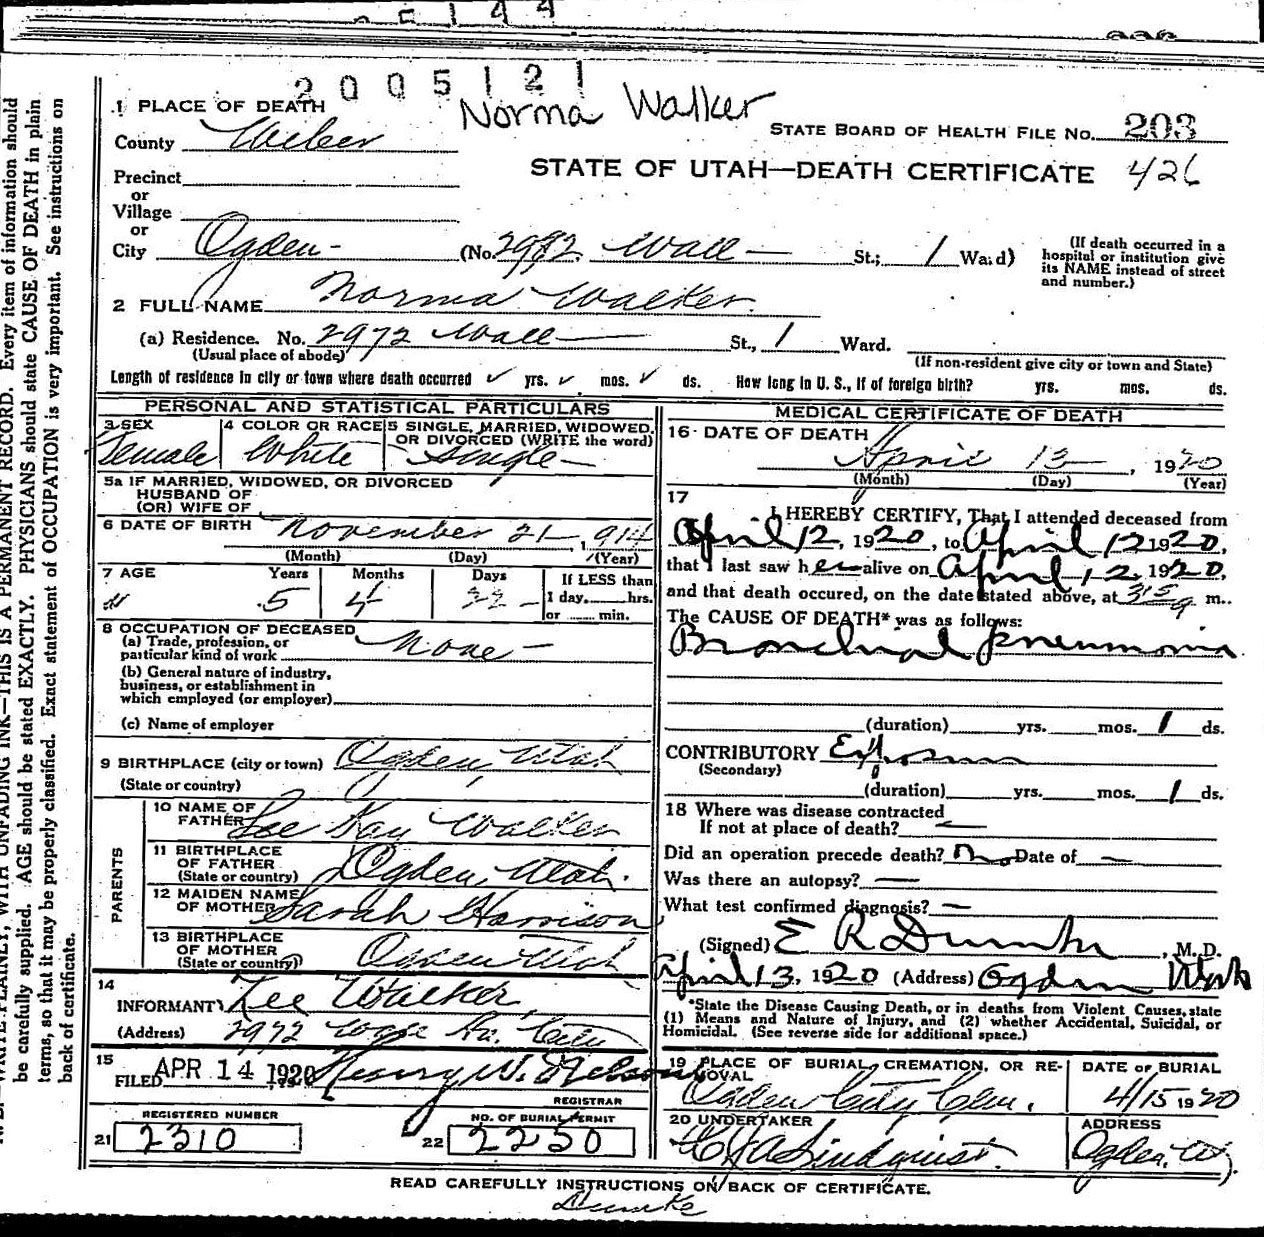 2005121
Norma Walker
1 PLACE OF DEATH
STATE BOARD OF HEALTH FILE No. 203
County Weber
STATE OF UTAH—DEATH CERTIFICATE 426
Precinct
or
Village
or
City Ogden (No. 2972 Wall St.; 1 Ward)
(If death occurred in a hospital or institution give its NAME instead of street and number.)
2 FULL NAME Norma Walker
(a) Residence. No. 2972 Wall St., 1 Ward.
(Usual place of abode)
(If non-resident give city or town and State)
Length of residence in city or town where death occurred ✓ yrs. ✓ mos. ✓ ds. How long in U. S., if of foreign birth? yrs. mos. ds.
PERSONAL AND STATISTICAL PARTICULARS
3 SEX Female
4 COLOR OR RACE White
5 SINGLE, MARRIED, WIDOWED, OR DIVORCED (WRITE the word) Single
5a IF MARRIED, WIDOWED, OR DIVORCED
HUSBAND OF
(OR) WIFE OF
6 DATE OF BIRTH November 21, 1914
(Month) (Day) (Year)
7 AGE Years 5 Months 4 Days 22
If LESS than
1 day, hrs.
or min.
8 OCCUPATION OF DECEASED
(a) Trade, profession, or
particular kind of work None
(b) General nature of industry,
business, or establishment in
which employed (or employer)
(c) Name of employer
9 BIRTHPLACE (city or town) Ogden, Utah
(State or country)
PARENTS
10 NAME OF
FATHER Lee Kay Walker
11 BIRTHPLACE
OF FATHER
(State or country) Ogden, Utah.
12 MAIDEN NAME
OF MOTHER Sarah Harrison
13 BIRTHPLACE
OF MOTHER
(State or country) Ogden Utah
14
INFORMANT Lee Walker,
(Address) 2972 City
15
FILED APR 14 1920 Henry W. Nelson
REGISTRAR
REGISTERED NUMBER
21 2310
NO. OF BURIAL PERMIT
22 2250
MEDICAL CERTIFICATE OF DEATH
16 DATE OF DEATH
April 13, 1920
(Month) (Day) (Year)
17
I HEREBY CERTIFY, That I attended deceased from
April 12, 1920, to April 12 1920,
that I last saw her alive on April 12, 1920,
and that death occured, on the date stated above, at m..
The CAUSE OF DEATH* was as follows:
Bronchial pneumonia
(duration) yrs. mos. 1 ds.
CONTRIBUTORY Exposure
(Secondary)
(duration) yrs. mos. 1 ds.
18 Where was disease contracted
If not at place of death? —
Did an operation precede death? No Date of —
Was there an autopsy? —
What test confirmed diagnosis? —
(Signed) E R Dumke, M. D.
April 13, 1920 (Address) Ogden Utah
*State the Disease Causing Death, or in deaths from Violent Causes, state
(1) Means and Nature of Injury, and (2) whether Accidental, Suicidal, or
Homicidal. (See reverse side for additional space.)
19 PLACE OF BURIAL, CREMATION, OR REMOVAL
Ogden City Cem.
DATE OF BURIAL
4/15 1920
20 UNDERTAKER
Lindquist.
ADDRESS
Ogden, Ut.
READ CAREFULLY INSTRUCTIONS ON BACK OF CERTIFICATE.
Dumke
WRITE PLAINLY, WITH UNFADING INK—THIS IS A PERMANENT RECORD. Every item of information should
be carefully supplied. AGE should be stated EXACTLY. PHYSICIANS should state CAUSE OF DEATH in plain
terms, so that it may be properly classified. Exact statement of OCCUPATION is very important. See instructions on
back of certificate.